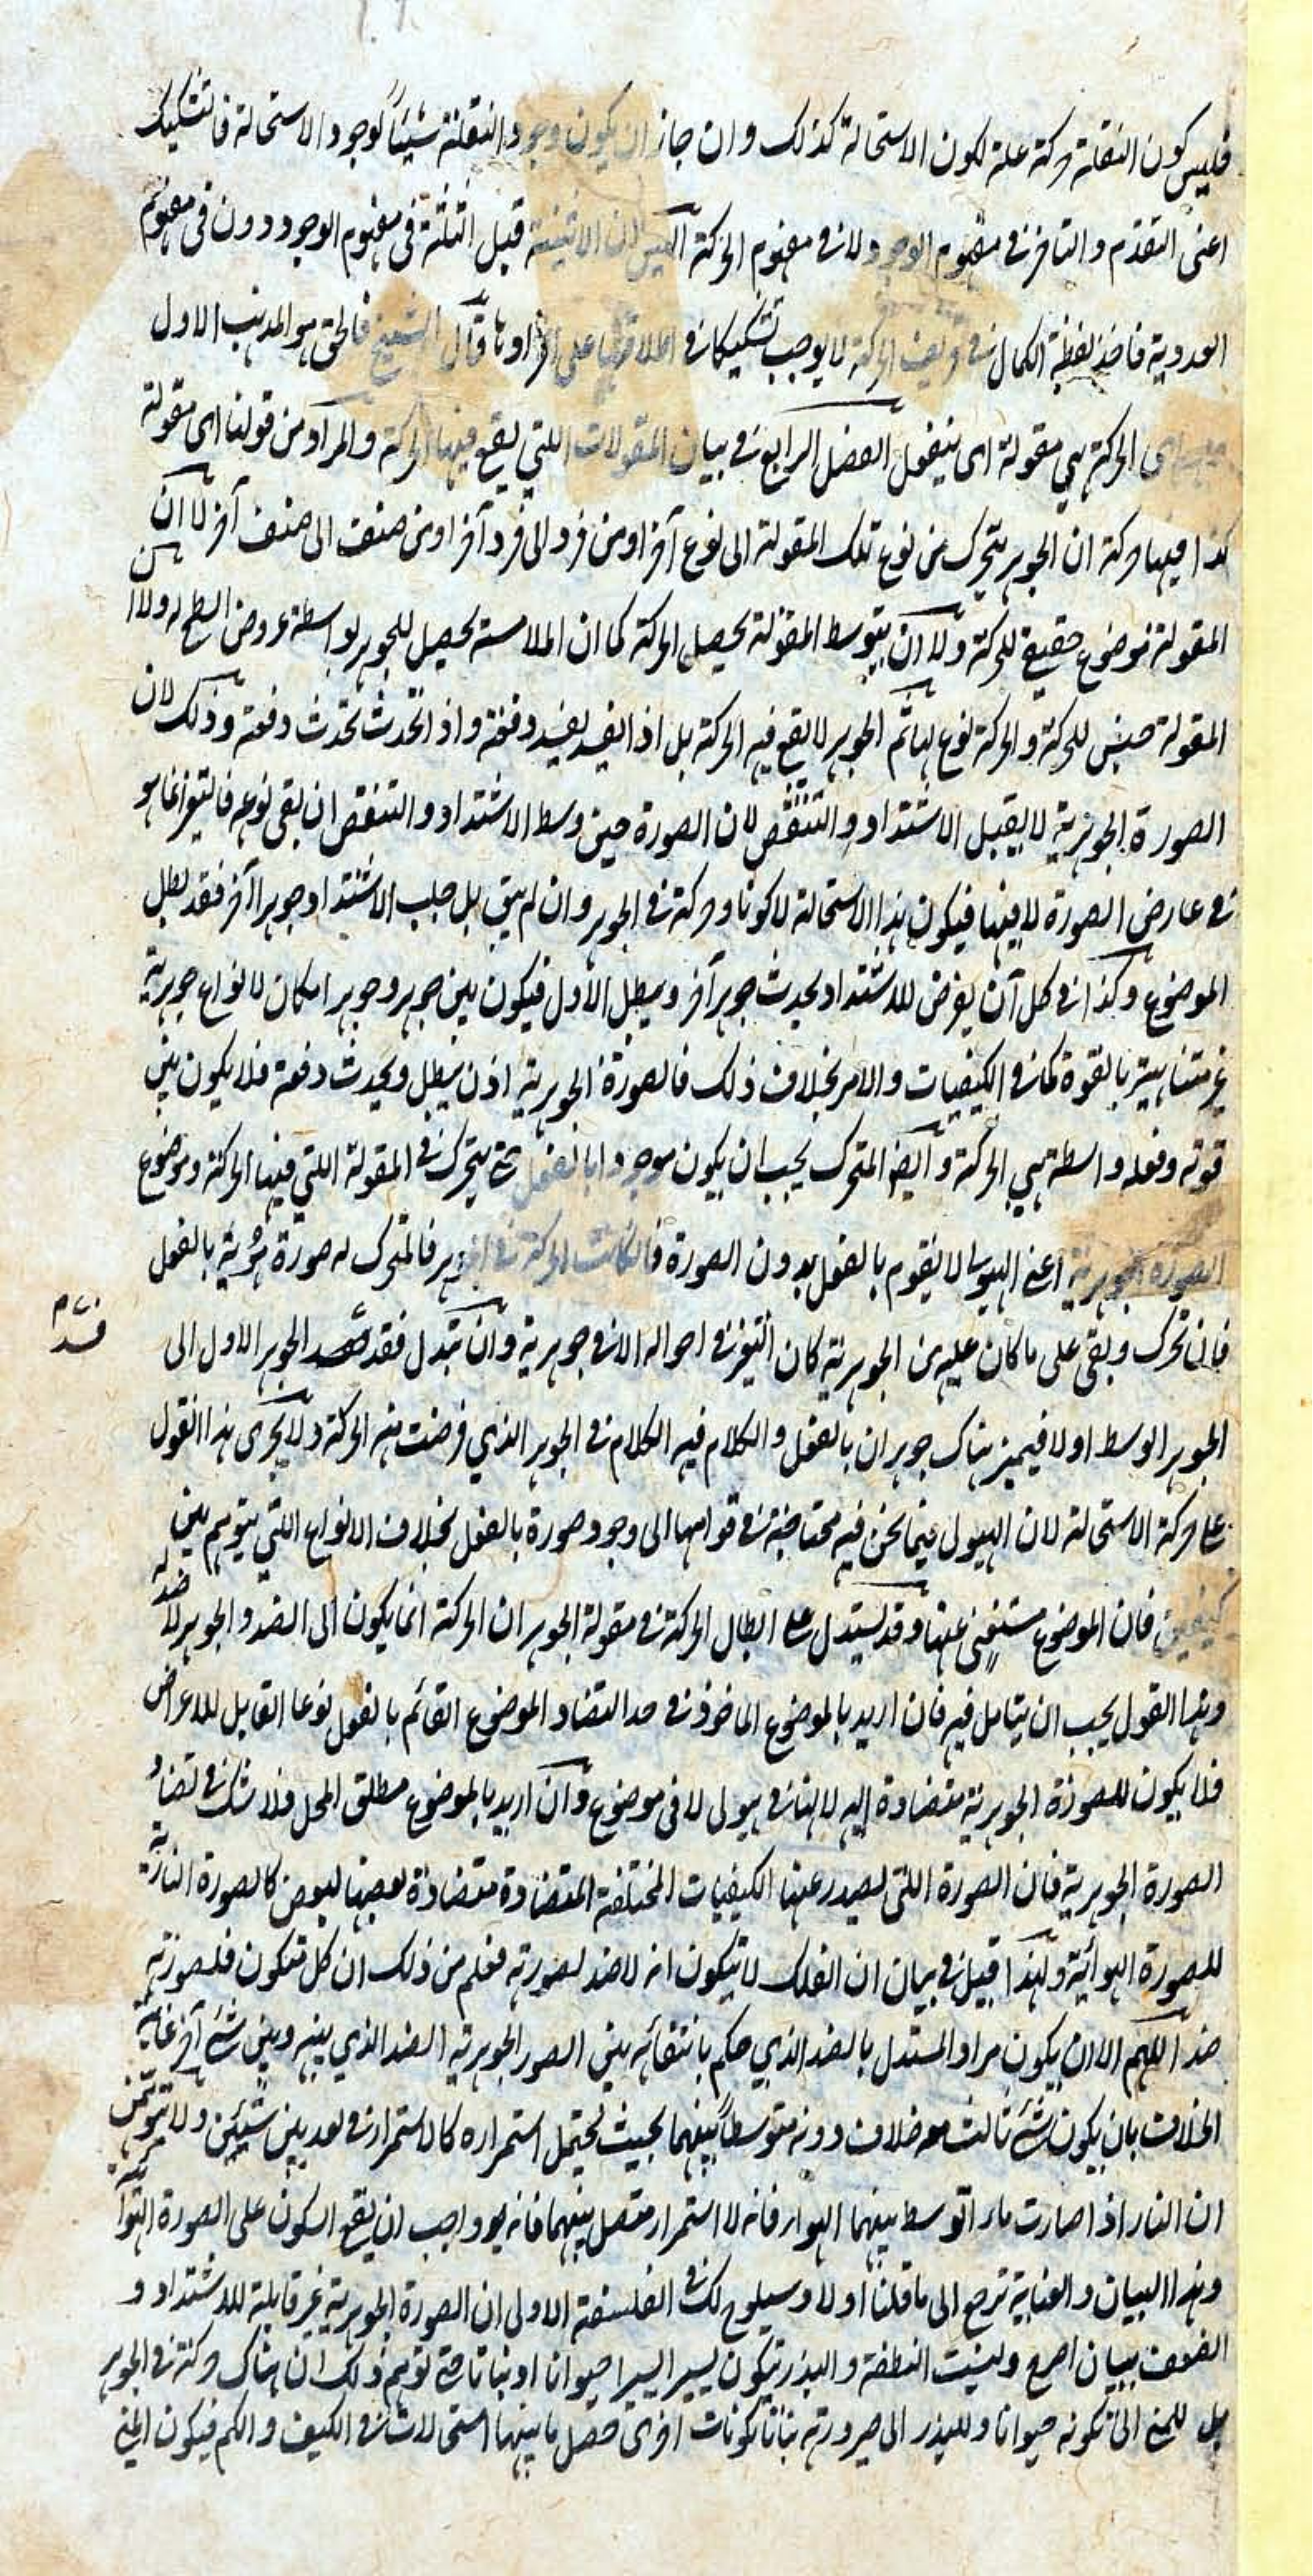 فليس كون النقلة حركة علة لكون الاستحالة كذلك وان جاز ان يكون وجود النقلة شيئاً لوجود الاستحالة فالتشكيك
اعنى التقدم والتاخر فى مفهوم الوجود لا فى مفهوم الحركة اليس ان الاثنينية قبل الثلثة فى مفهوم الوجود دون فى مفهوم
العددية فاخذ لفظة الكمال فى تعريف الحركة لا يوجب تشكيكا فى اطلاقها على افرادها قال الشيخ فالحق هو المذهب الاول
الحركة هى مقولة ان ينفعل الفصل الرابع فى بيان المقولات اللتى يقع فيها الحركة والمراد من قولنا اى مقولة
كذا فيها حركة ان الجوهر يتحرك من نوع تلك المقولة الى نوع آخر او من فرد الى فرد آخر او من صنف الى صنف آخر لا ان
المقولة موضوع حقيقى للحركة ولا ان بتوسط المقولة يحصل الحركة كما ان الملامسة يحصل للجوهر بواسطة عروض السطح له ولا ان
المقولة جنس للحركة والحركة نوع لها ثم الجوهر لا يقع فيه الحركة بل اذا يفسد يفسد دفعة واذا تحدث تحدث دفعة وذلك لان
الصورة الجوهرية لا يقبل الاشتداد والتنقص لان الصورة حين وسط الاشتداد والتنقص ان بقى نوعه فالتغير انما هو
فى عارض الصورة لا فيها فيكون هذا الاستحالة لا كونا وحركة فى الجوهر وان لم يبق بل جلب الاشتداد جوهرا آخر فقد بطل
الموضوع وكذا فى كل آن يفرض للاشتداد يحدث جوهر آخر ويبطل الاول فيكون بين جوهر وجوهر امكان لانواع جوهرية
غير متناهية بالقوة كما فى الكيفيات والامر بخلاف ذلك فالصورة الجوهرية اذن يبطل ويحدث دفعة فلا يكون بين
قوته وفعله واسطة هى الحركة وايضا المتحرك يجب ان يكون موجودا بالفعل حتى يتحرك فى المقولة اللتى فيها الحركة وموضوع
الصورة الجوهرية اعنى الهيولى لا يقوم بالفعل بدون الصورة فان كانت الحركة فى الجوهر فالمتحرك له صورة جوهرية بالفعل
فان تحرك وبقى على ما كان عليه من الجوهرية كان التغير فى احواله لا فى جوهرية وان تبدل فقد فسد الجوهر الاول الى
الجوهر الوسط اولا فيميز هناك جوهران بالفعل والكلام فيه الكلام فى الجوهر الذي فرضت منه الحركة ولا يجرى هذا القول
على حركة الاستحالة لان الهيولى فيما نحن فيه محتاجة فى قوامها الى وجود صورة بالفعل بخلاف الانواع اللتى يتوهم بين
كيفيتين فان الموضوع مستغنى عنها وقد يستدل على ابطال الحركة فى مقولة الجوهر ان الحركة انما يكون الى الضد والجوهر لا ضد له
وهذا القول يجب ان يتامل فيه فان اريد بالموضوع الماخوذ فى حد التضاد الموضوع القائم بالفعل نوعا القابل للاعراض
فلا يكون للصورة الجوهرية متضادة اليه لانها فى هيولى لا فى موضوع وان اريد بالموضوع مطلق المحل فلا شك فى تضاد
الصورة الجوهرية فان الصورة اللتى يصدر عنها الكيفيات المختلفة المتضادة متضادة بعضها لبعض كالصورة النارية
للصورة الهوائية ولهذا قيل فى بيان ان الفلك لا يتكون انه لا ضد لصورته فعلم من ذلك ان كل متكون فلصورته
ضد اللهم الا ان يكون مراد المستدل بالضد الذي حكم بانتفائه بين الصور الجوهرية الضد الذي بينه وبين شئ آخر غاية
الخلاف بان يكون شئ ثالث معه خلاف دونه متوسطا بينهما بحيث يحتمل استمراره كالاستمرار فى بعد بين شيئين ولا تتوهمن
ان النار اذا صارت ماء توسط بينهما الهواء فانه لا استمرار متصل بينهما فانه هو واجب ان يقع السكون على الصورة الهوائية
وهذا البيان والعناية ترجع الى ما قلنا اولا وسيلوح لك فى الفلسفة الاولى ان الصورة الجوهرية غير قابلة للاشتداد و
الضعف ببيان اصرح وليست النطفة والبذر يتكون يسيرا يسيرا حيوانا او نباتا حتى توهم ذلك ان هناك حركة فى الجوهر
بل للمنى الى تكونه حيوانا وللبذر الى صيرورته نباتا تكونات اخرى حصل ما بينها استحالات فى الكيف والكم فيكون المنى